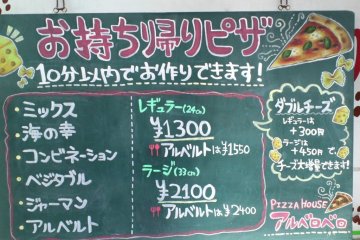 お持ち帰りピザ
10分以内でお作りできます!
・ミックス
・海の幸
・コンビネーション
・ベジタブル
・ジャーマン
・アルベルト
レギュラー(24cm)
¥1300
アルベルトは¥1550
ラージ(33cm)
¥2100
アルベルトは¥2400
ダブルチーズ
レギュラーは
+300円
ラージは
+450円で、
チーズ大増量できます!
PIZZA HOUSE
アルベロベロ